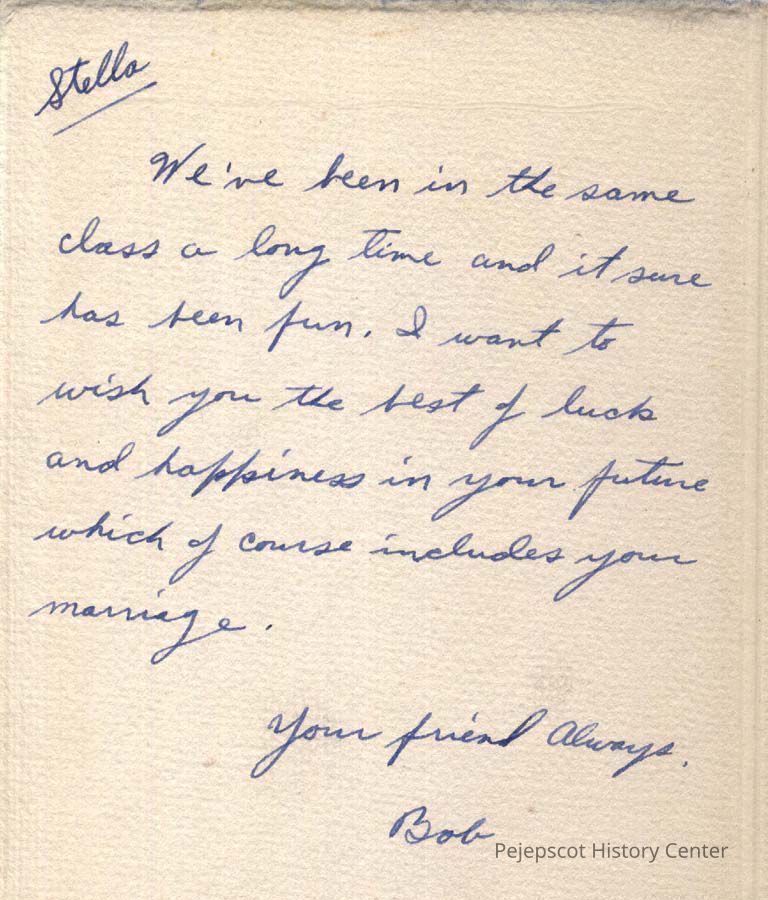 Stella
We've been in the same
class a long time and it sure
has been fun. I want to
wish you the best of luck
and happiness in your future
which of course includes your
marriage.
Your friend Always.
Bob
Pejepscot History Center